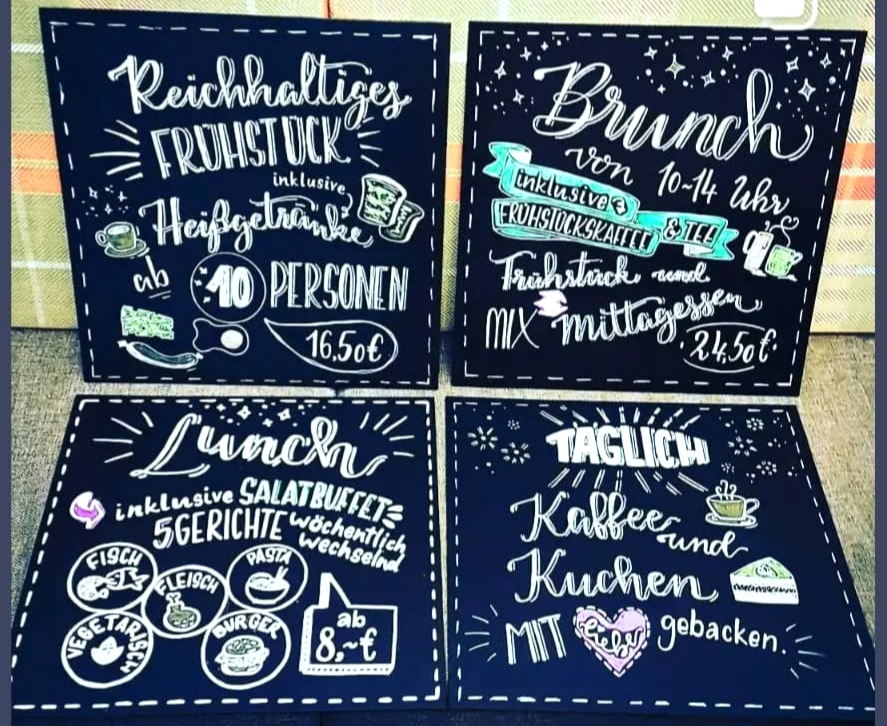 Reichhaltiges
FRÜHSTÜCK
inklusive
Heißgetränke
ab 10 PERSONEN
16,50€
Brunch
von 10-14 Uhr
inklusive
FRÜHSTÜCKSKAFFEE & TEE
Frühstück und
MIX Mittagessen
24,50€
Lunch
inklusive SALATBUFFET
5 GERICHTE wöchentlich
wechselnd
FISCH
FLEISCH
PASTA
VEGETARISCH
BURGER
ab
8,~€
TÄGLICH
Kaffee und
Kuchen
MIT Liebe gebacken.